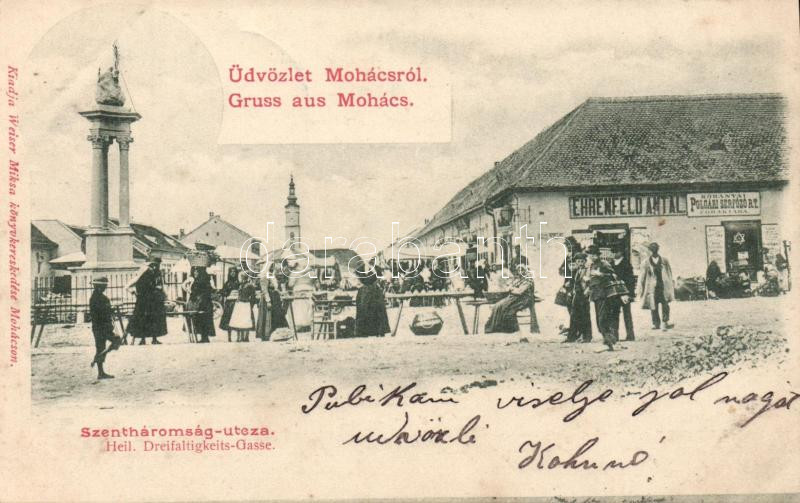 Üdvözlet Mohácsról.
Gruss aus Mohács.
Kiadja Weiser Miksa könyvkereskedése Mohácson.
EHRENFELD ANTAL
KŐBÁNYAI
POLGÁRI SERFŐZŐ R.T.
FŐRAKTÁRA
darabanth
Szentháromság-utcza.
Heil. Dreifaltigkeits-Gasse.
Pubikám viselje jól magát
üdvözli
Kohnnó